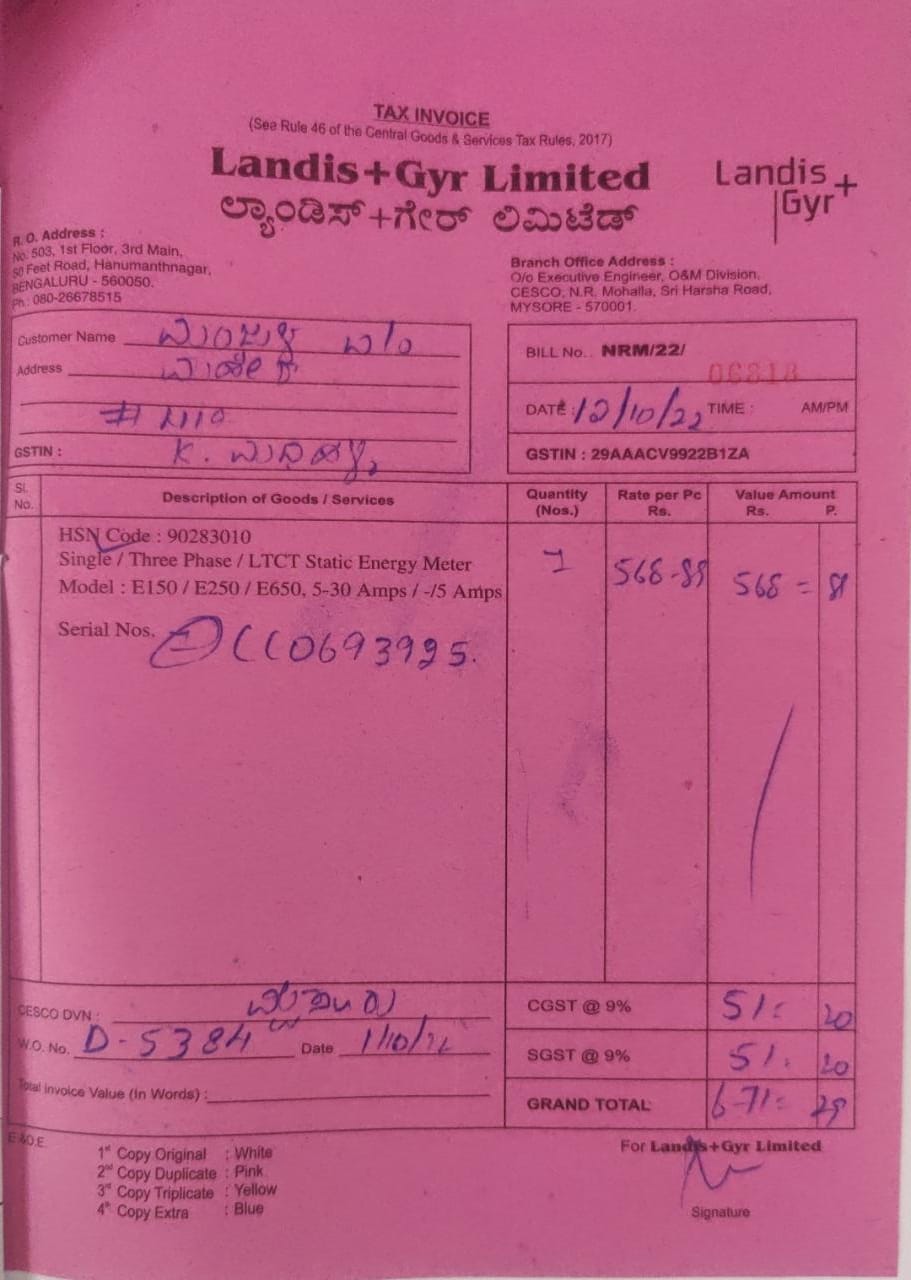 TAX INVOICE
(See Rule 46 of the Central Goods & Services Tax Rules, 2017)
Landis+Gyr Limited
ಲ್ಯಾಂಡಿಸ್+ಗೇರ್ ಲಿಮಿಟೆಡ್
Landis
Gyr+
R. O. Address :
No. 503, 1st Floor, 3rd Main,
80 Feet Road, Hanumanthnagar,
BENGALURU - 560050.
Ph : 080-26678515
Branch Office Address :
O/o Executive Engineer, O&M Division,
CESCO, N.R. Mohalla, Sri Harsha Road,
MYSORE - 570001.
Customer Name
Address
GSTIN : K.
BILL No.. NRM/22/ 06818
DATE : 12/10/22 TIME : AM/PM
GSTIN : 29AAACV9922B1ZA
Sl. No. Description of Goods / Services Quantity (Nos.) Rate per Pc Rs. Value Amount Rs. P.
HSN Code : 90283010
Single / Three Phase / LTCT Static Energy Meter 1 568-
Model : E150 / E250 / E650, 5-30 Amps / -/5 Amps 568 =
Serial Nos. CC0693995.
CESCO DVN :
CGST @ 9% 51= 20
W.O. No. D-5384 Date 1/10/22
SGST @ 9% 51. 20
Total Invoice Value (In Words) :
GRAND TOTAL 671= 29
E &O.E.
1st Copy Original : White
2nd Copy Duplicate : Pink
3rd Copy Triplicate : Yellow
4th Copy Extra : Blue
For Landis+Gyr Limited
Signature